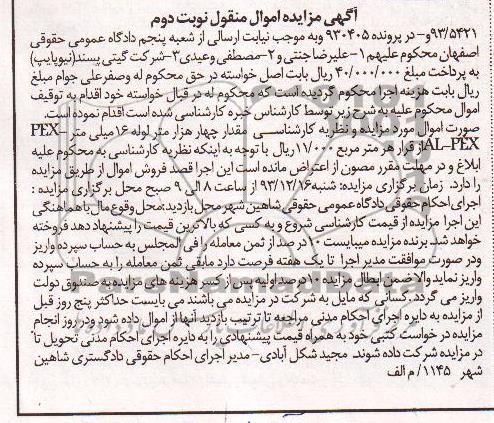 آگهی مزایده اموال منقول نوبت دوم
۹۳/۵۴۲۱و- در پرونده ۹۳۰۴۰۵ وبه موجب نیابت ارسالی از شعبه پنجم دادگاه عمومی حقوقی
اصفهان محکوم علیهم ۱-علیرضا جنتی و۲-مصطفی وعیدی ۳-شرکت گیتی پسند(نیوپایپ)
به پرداخت مبلغ ۴۰/۰۰۰/۰۰۰ ریال بابت اصل خواسته در حق محکوم له وصفرعلی جوام مبلغ
ریال بابت هزینه اجرا محکوم گردیده است که محکوم له در قبال خواسته خود اقدام به توقیف
اموال محکوم علیه به شرح زیر توسط کارشناس خبره کارشناسی شده است اقدام نموده است.
صورت اموال مورد مزایده و نظریه کارشناسی مقدار چهار هزار متر لوله ۱۶ میلی متر PEX-
AL-PEX از قرار هر متر مربع ۱۱/۰۰۰ریال با توجه به اینکه نظریه کارشناسی به محکوم علیه
ابلاغ و در مهلت مقرر مصون از اعتراض مانده است این اجرا قصد فروش اموال از طریق مزایده
را دارد. زمان برگزاری مزایده: شنبه ۹۳/۱۲/۱۶ از ساعت ۸ الی ۹ صبح محل برگزاری مزایده :
اجرای احکام حقوقی دادگاه عمومی حقوقی شاهین شهر محل بازدید:محل وقوع مال با هماهنگی
این اجرا مزایده از قیمت کارشناسی شروع و به کسی که بالاترین قیمت را پیشنهاد دهد فروخته
خواهد شد. برنده مزایده میبایست ۱۰درصد از ثمن معامله را فی المجلس به حساب سپرده واریز
ودر صورت موافقت مدیر اجرا تا یک هفته فرصت دارد مابقی ثمن معامله را به حساب سپرده
واریز نماید والا ضمن ابطال مزایده ۱۰درصد اولیه پس از کسر هزینه های مزایده به صندوق دولت
واریز می گردد. کسانی که مایل به شرکت در مزایده می باشند می بایست حداکثر پنج روز قبل
از مزایده به دایره اجرای احکام مدنی مراجعه تا ترتیب بازدید آنها از اموال داده شود ودر روز انجام
مزایده در خواست کتبی خود به همراه قیمت پیشنهادی را به دایره اجرای احکام مدنی تحویل تا
در مزایده شرکت داده شوند مجید شکل آبادی- مدیر اجرای احکام حقوقی دادگستری شاهین
شهر ۱۱۴۵/ م الف